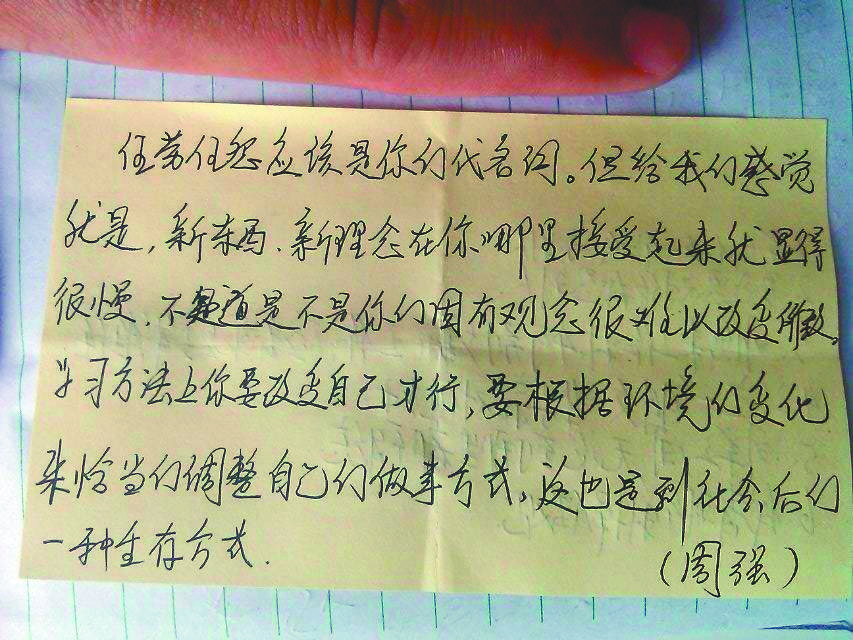 任劳任怨应该是你的代名词。但给我的感觉
就是，新东西、新理念在你哪里接受起来就显得
很慢，不知道是不是你的固有观念很难以改变所致。
学习方法上你要改变自己才行，要根据环境的变化
来恰当的调整自己的做事方式，这也是到社会后的
一种生存方式.
（周强）